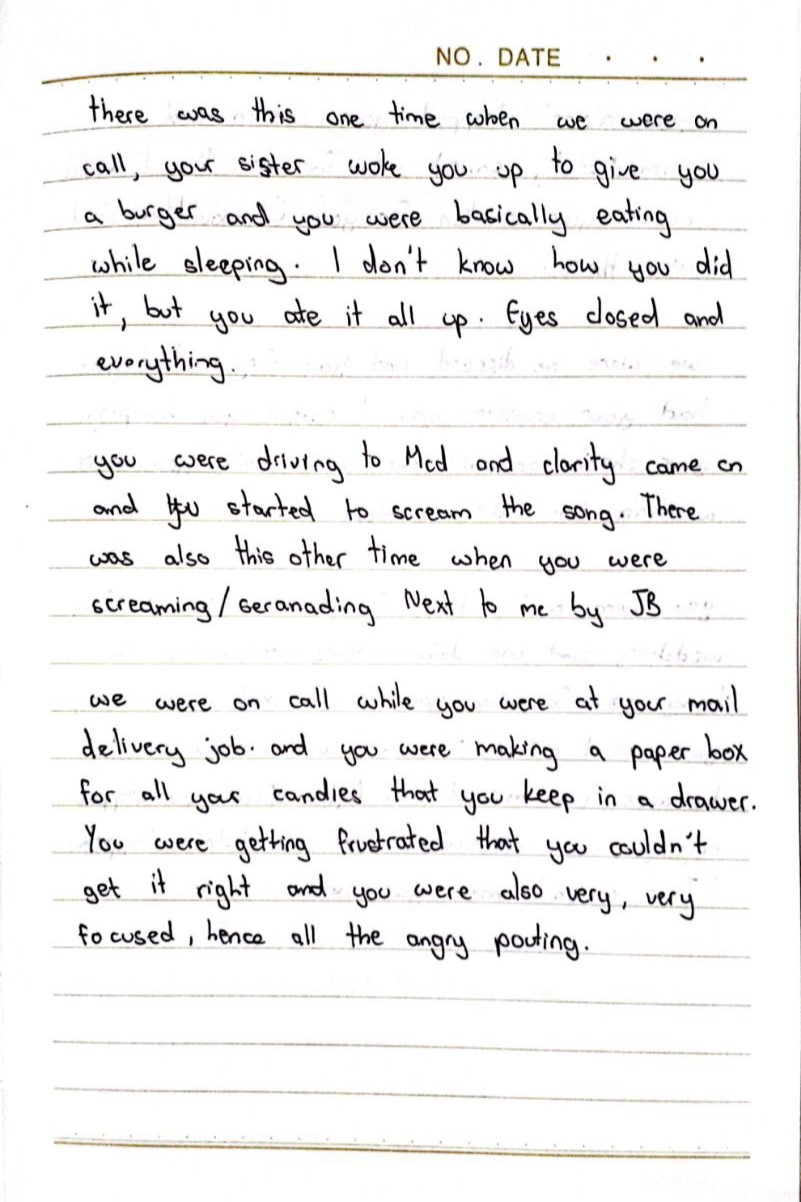 NO. DATE . . .
there was this one time when we were on
call, your sister woke you up to give you
a burger and you were basically eating
while sleeping. I don't know how you did
it, but you ate it all up. Eyes closed and
everything.
you were driving to Mcd and clarity came on
and you started to scream the song. There
was also this other time when you were
screaming/seranading Next to me by JB
we were on call while you were at your mail
delivery job. and you were making a paper box
for all your candies that you keep in a drawer.
You were getting frustrated that you couldn't
get it right and you were also very, very
focused, hence all the angry pouting.